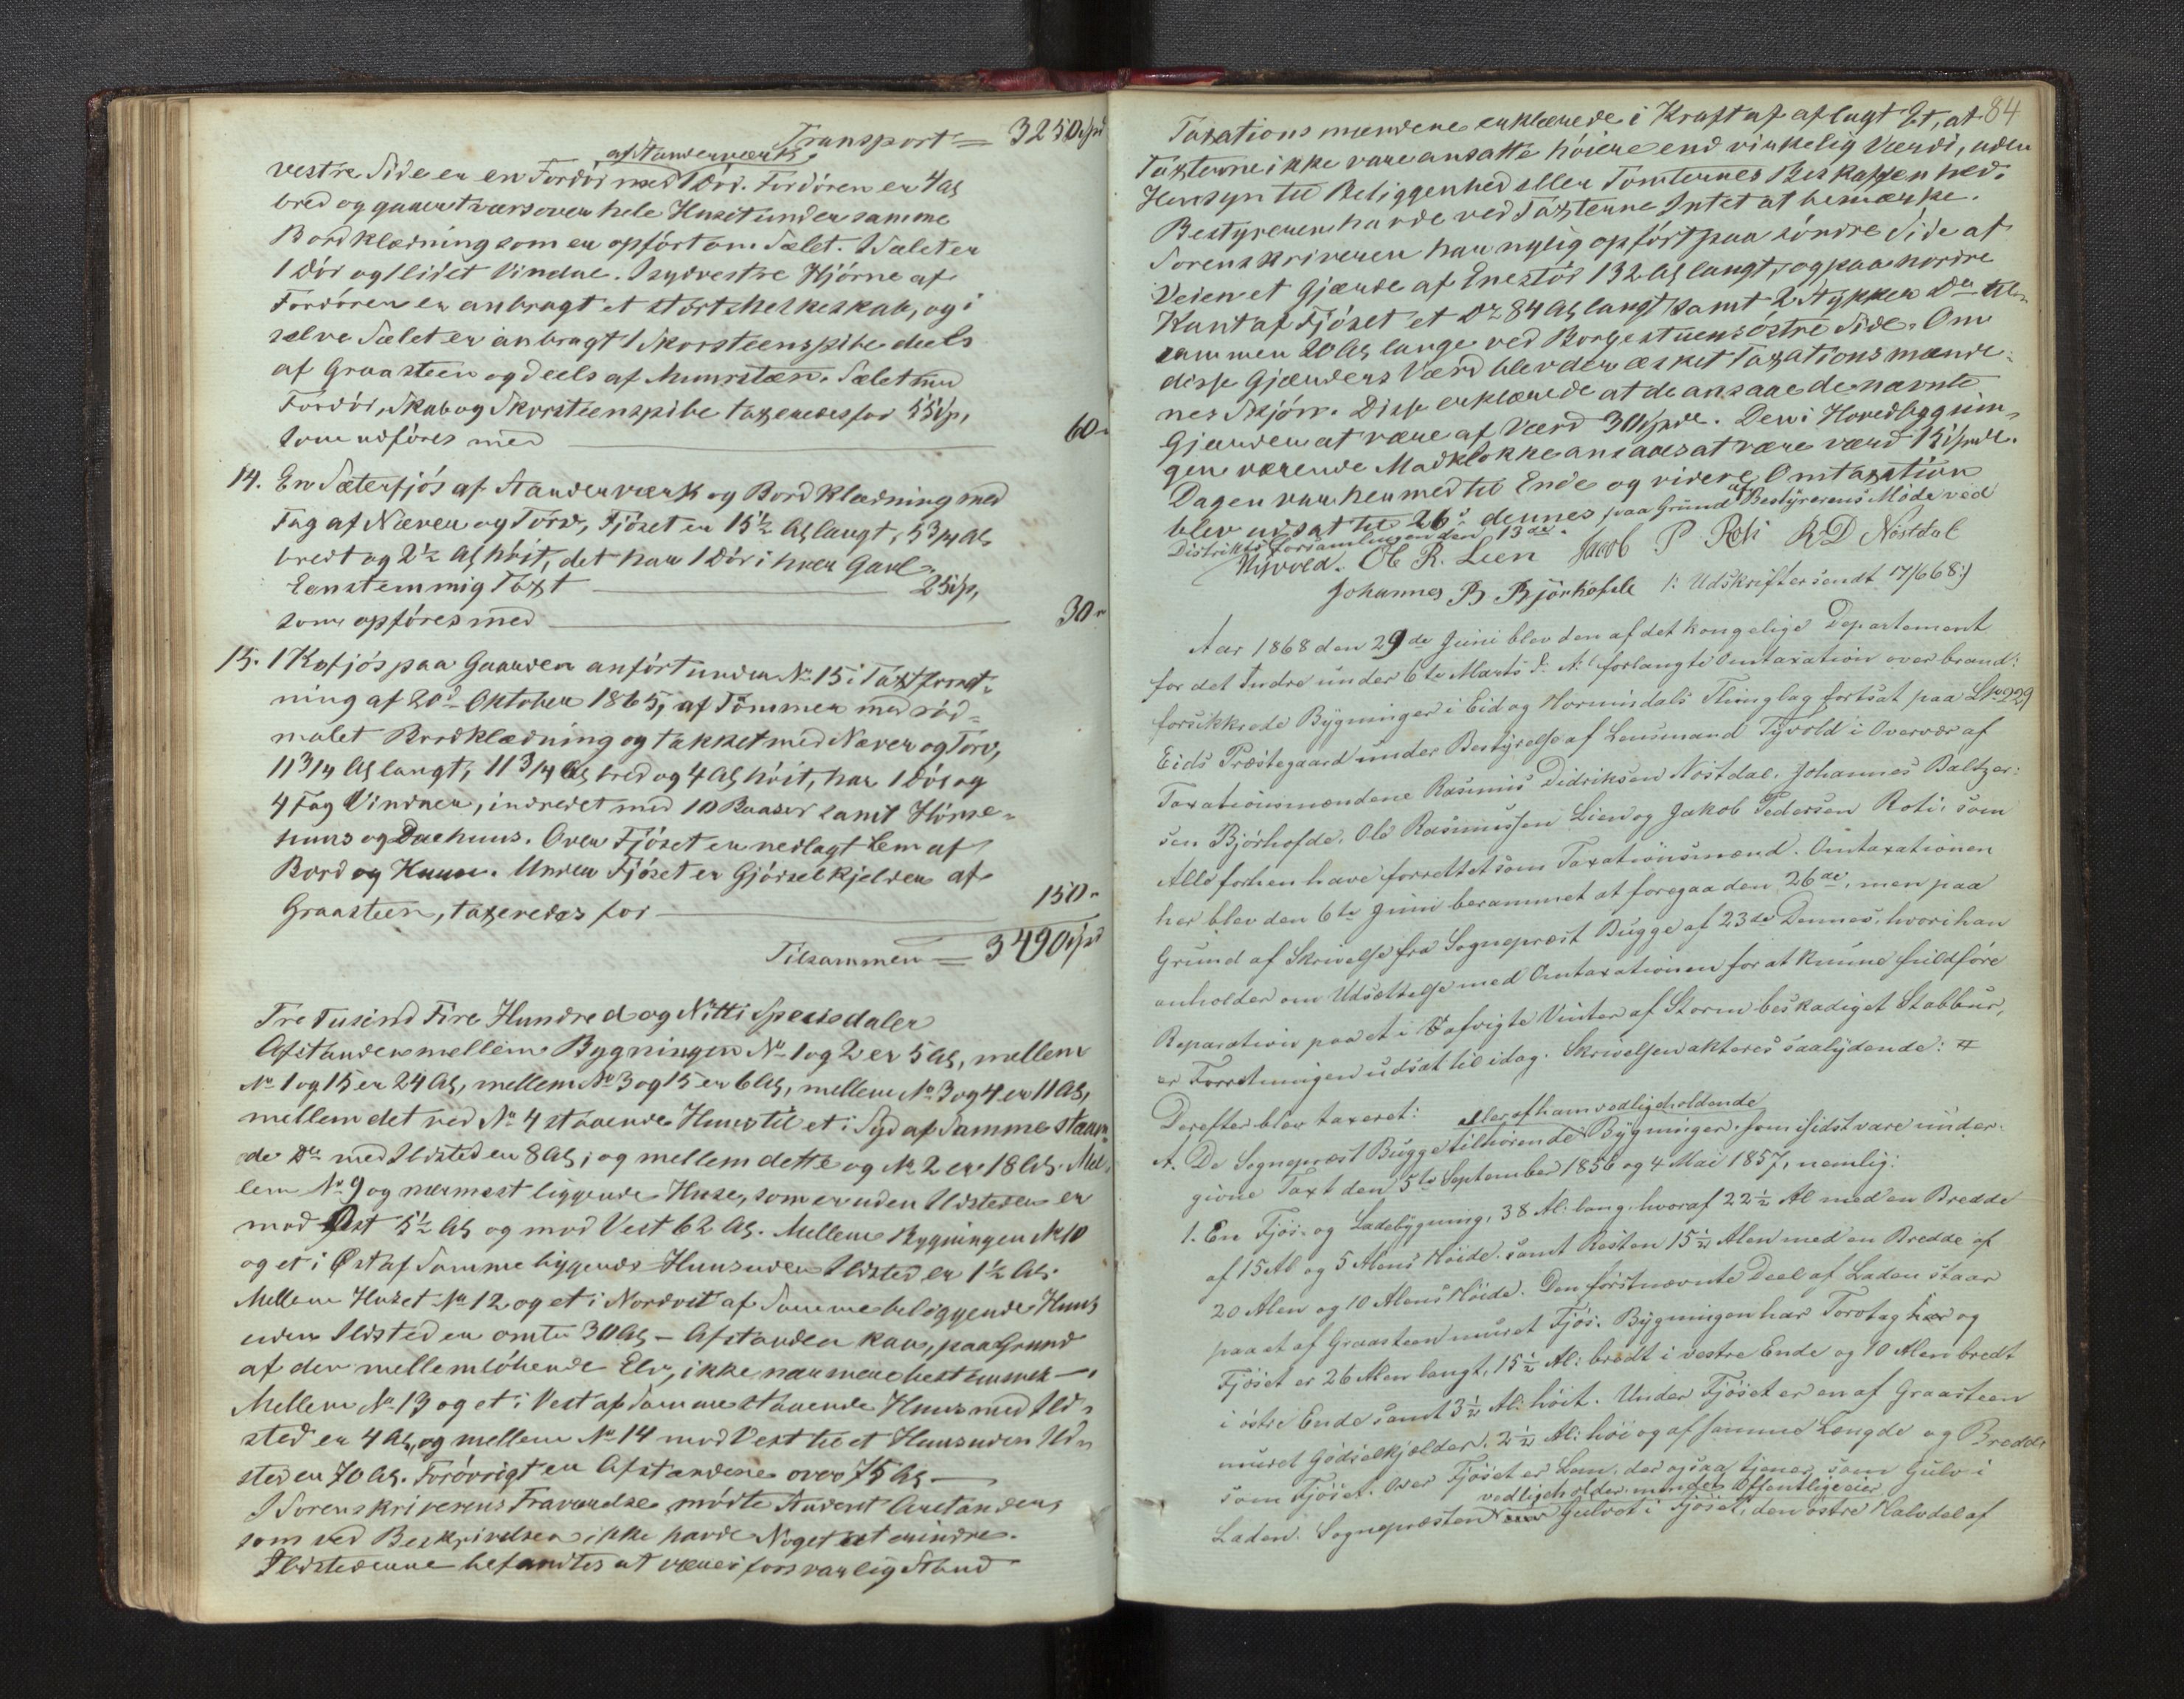 Transport = 3250 Spd
af Standerværk
vestre Side er en Fordör med 1 Dör. Fordören er 4 Al,
bred og gaaer tværs over hele Huset under samme
Bordklædning som er opfört om Sælet. I Sælet er
1 Dör og 1 lidet Vindue. I sydvestre Hjörne af
Fordören er anbragt et stort Melkeskab, og i
selve Sælet er anbragt 1 Skorsteenspibe deels
af Graasteen og deels af Muursteen. Sælet med
Fordör, Skab og Skorsteenspibe taxeredes for 55 Sp,
som udföres med 60 "
14. En Sæterfjös af Standerværk og Bordklædning med
Tag af Næver og Törv, Fjöset er 15½ Al, langt, 5 3/4 Al,
bredt og 2½ Al, höit, det har 1 Dör i hver Gavl
Eenstemmig Taxt 25 Sp,
som opföres med 30 "
15. 1 Kofjös paa Gaarden anfört under No 15 i Taxtforret-
ning af 20de Oktober 1865, af Tömmer med röd-
malet Bordklædning og takket med Næver og Törv,
11 3/4 Al, langt, 11 3/4 Al, bred og 4 Al, höit, har 1 Dör og
4 Fag Vinduer, indredet med 10 Baaser samt
huus og Over Fjöset er nedlagt Lem af
Bord og Under Fjöset er Gjödselkjelder af
Graasteen, taxeredes for 150 "
Tilsammen = 3490 Spd
Tre Tusind Fire Hundred og Nitti Speciedaler
Afstanden mellem Bygningen No 1 og 2 er 5 Al, mellem
No 1 og 15 er 24 Al, mellem No 3 og 15 er 6 Al, mellem No 3 og 4 er 11 Al,
mellem det ved No 4 staaende Huus til et i Syd af Samme staaen-
de Do med Ildsted er 8 Al, og mellem dette og No 2 er 18 Al. Mel-
lem No 9 og nærmest liggende Huse, som er uden Ildsteder er
mod Öst 5½ Al, og mod Vest 62 Al. Mellem Bygningen No 10
og et i Øst af Samme liggende Huus uden Ildsted er 1½ Al,
Mellem Huset No 12 og et i Nordvest af Samme beliggende Huus
uden Ildsted er omtr 30 Al, – Afstanden kan, paa Grund
af den mellemlöbende Elv, ikke nærmere bestemmes –
Mellem No 13 og et i Vest af Samme staaende Huus med Ild-
sted er 4 Al, og mellem No 14 mod Vest til et Huus uden Ild-
sted er 70 Al. Forövrigt er Afstandene over 75 Al, –
I Sorenskriverens Fraværelse mödte Student
som ved Beskrivelsen ikke havde Noget at erindre.
Ildstederne befandtes at være i forsvarlig Stand
84
Taxationsmændene erklærede i Kraft af aflagt Ed, at
Taxterne ikke vare ansatte höiere end virkelig Værdi, uden
Hensyn til Beliggenhed eller Tomternes Beskaffenhed.
Bestyreren havde ved Taxterne Intet at bemærke.
Sorenskriveren har nylig opfört paa söndre Side af
Veien et Gjærde af 132 Al, langt, og paa nordre
Kant af Fjöset et Do 84 Al, langt samt 2 Stykker Do til-
sammen 20 Al, lange ved Borgestuens östre Side. Om
disse Gjærders Værd blev der æsket Taxationsmænde-
nes Skjön. Disse erklærede at de ansaae de nævnte
Gjærder at være af Værd 30 Spdr. Den i Hovedbygnin-
gen værende Madklokke ansaaes at være værd 15 Spdr.
Dagen var hermed til Ende og videre Omtaxation
blev udsat til 26de dennes paa Grund af Bestyrerens Möde ved
Distrikts Forsamlingen den 13de.
Tyvold. Ole R. Lien Jacob P Roti R D Nöstdal
Johannes B Björhofde /: Udskrifter sendt 17/6 68 :/
Aar 1868 den 29de Juni blev den af det kongelige Departement
for det Indre under 6te Marts d. A. forlangte Omtaxation over brand-
forsikkrede Bygninger i Eid og Hornindals Thinglag fortsat paa L No 229
Eids Præstegaard under Bestyrelse af Lensmand Tyvold i Overvær af
Taxationsmændene Rasmus Didriksen Nöstdal, Johannes Baltzer-
sen Björhofde, Ole Rasmussen Lien og Jakob Pedersen Roti, som
Alle forhen have forrettet som Taxationsmænd. Omtaxationen
her blev den 6te Juni berammet at foregaa den 26de, men paa
Grund af Skrivelse fra Sognepræst Bugge af 23de Dennes, hvori han
anholder om Udsættelse med Omtaxationen for at kunne fuldföre
Reparation paa et i afvigte Vinter af Storm beskadiget Stabbur,
er Forretningen udsat til idag. Skrivelsen akteres saalydende: #
Derefter blev taxeret:
eller af ham vedligeholdende
A. De Sognepræst Bugge tilhörende Bygninger, som sidst vare under-
givne Taxt den 5te September 1856 og 4 Mai 1857, nemlig:
1. En Fjös- og Ladebygning, 38 Al: lang, hvoraf 22½ Al med en Bredde
af 15 Al og 5 Alens Höide, samt Resten 15½ Alen med en Bredde af
20 Alen og 10 Alens Höide. Den förstnævnte Deel af Laden staar
paa et af Graasteen muret Fjös. Bygningen har Torvtag og
Fjöset er 26 Alen langt, 15½ Al: bredt i vestre Ende og 10 Alen bredt
i östre Ende samt 3½ Al: höit. Under Fjöset er en af Graasteen
muret Gödselkjelder, 2½ Al: höi og af samme Længde og Bredde
som Fjöset. Over Fjöset er Lem, der ogsaa tjener som Gulv i
vedligeholder, men det Offentlige eier
Laden. Sognepræsten Gulvet i Fjöset, den östre Halvdel af